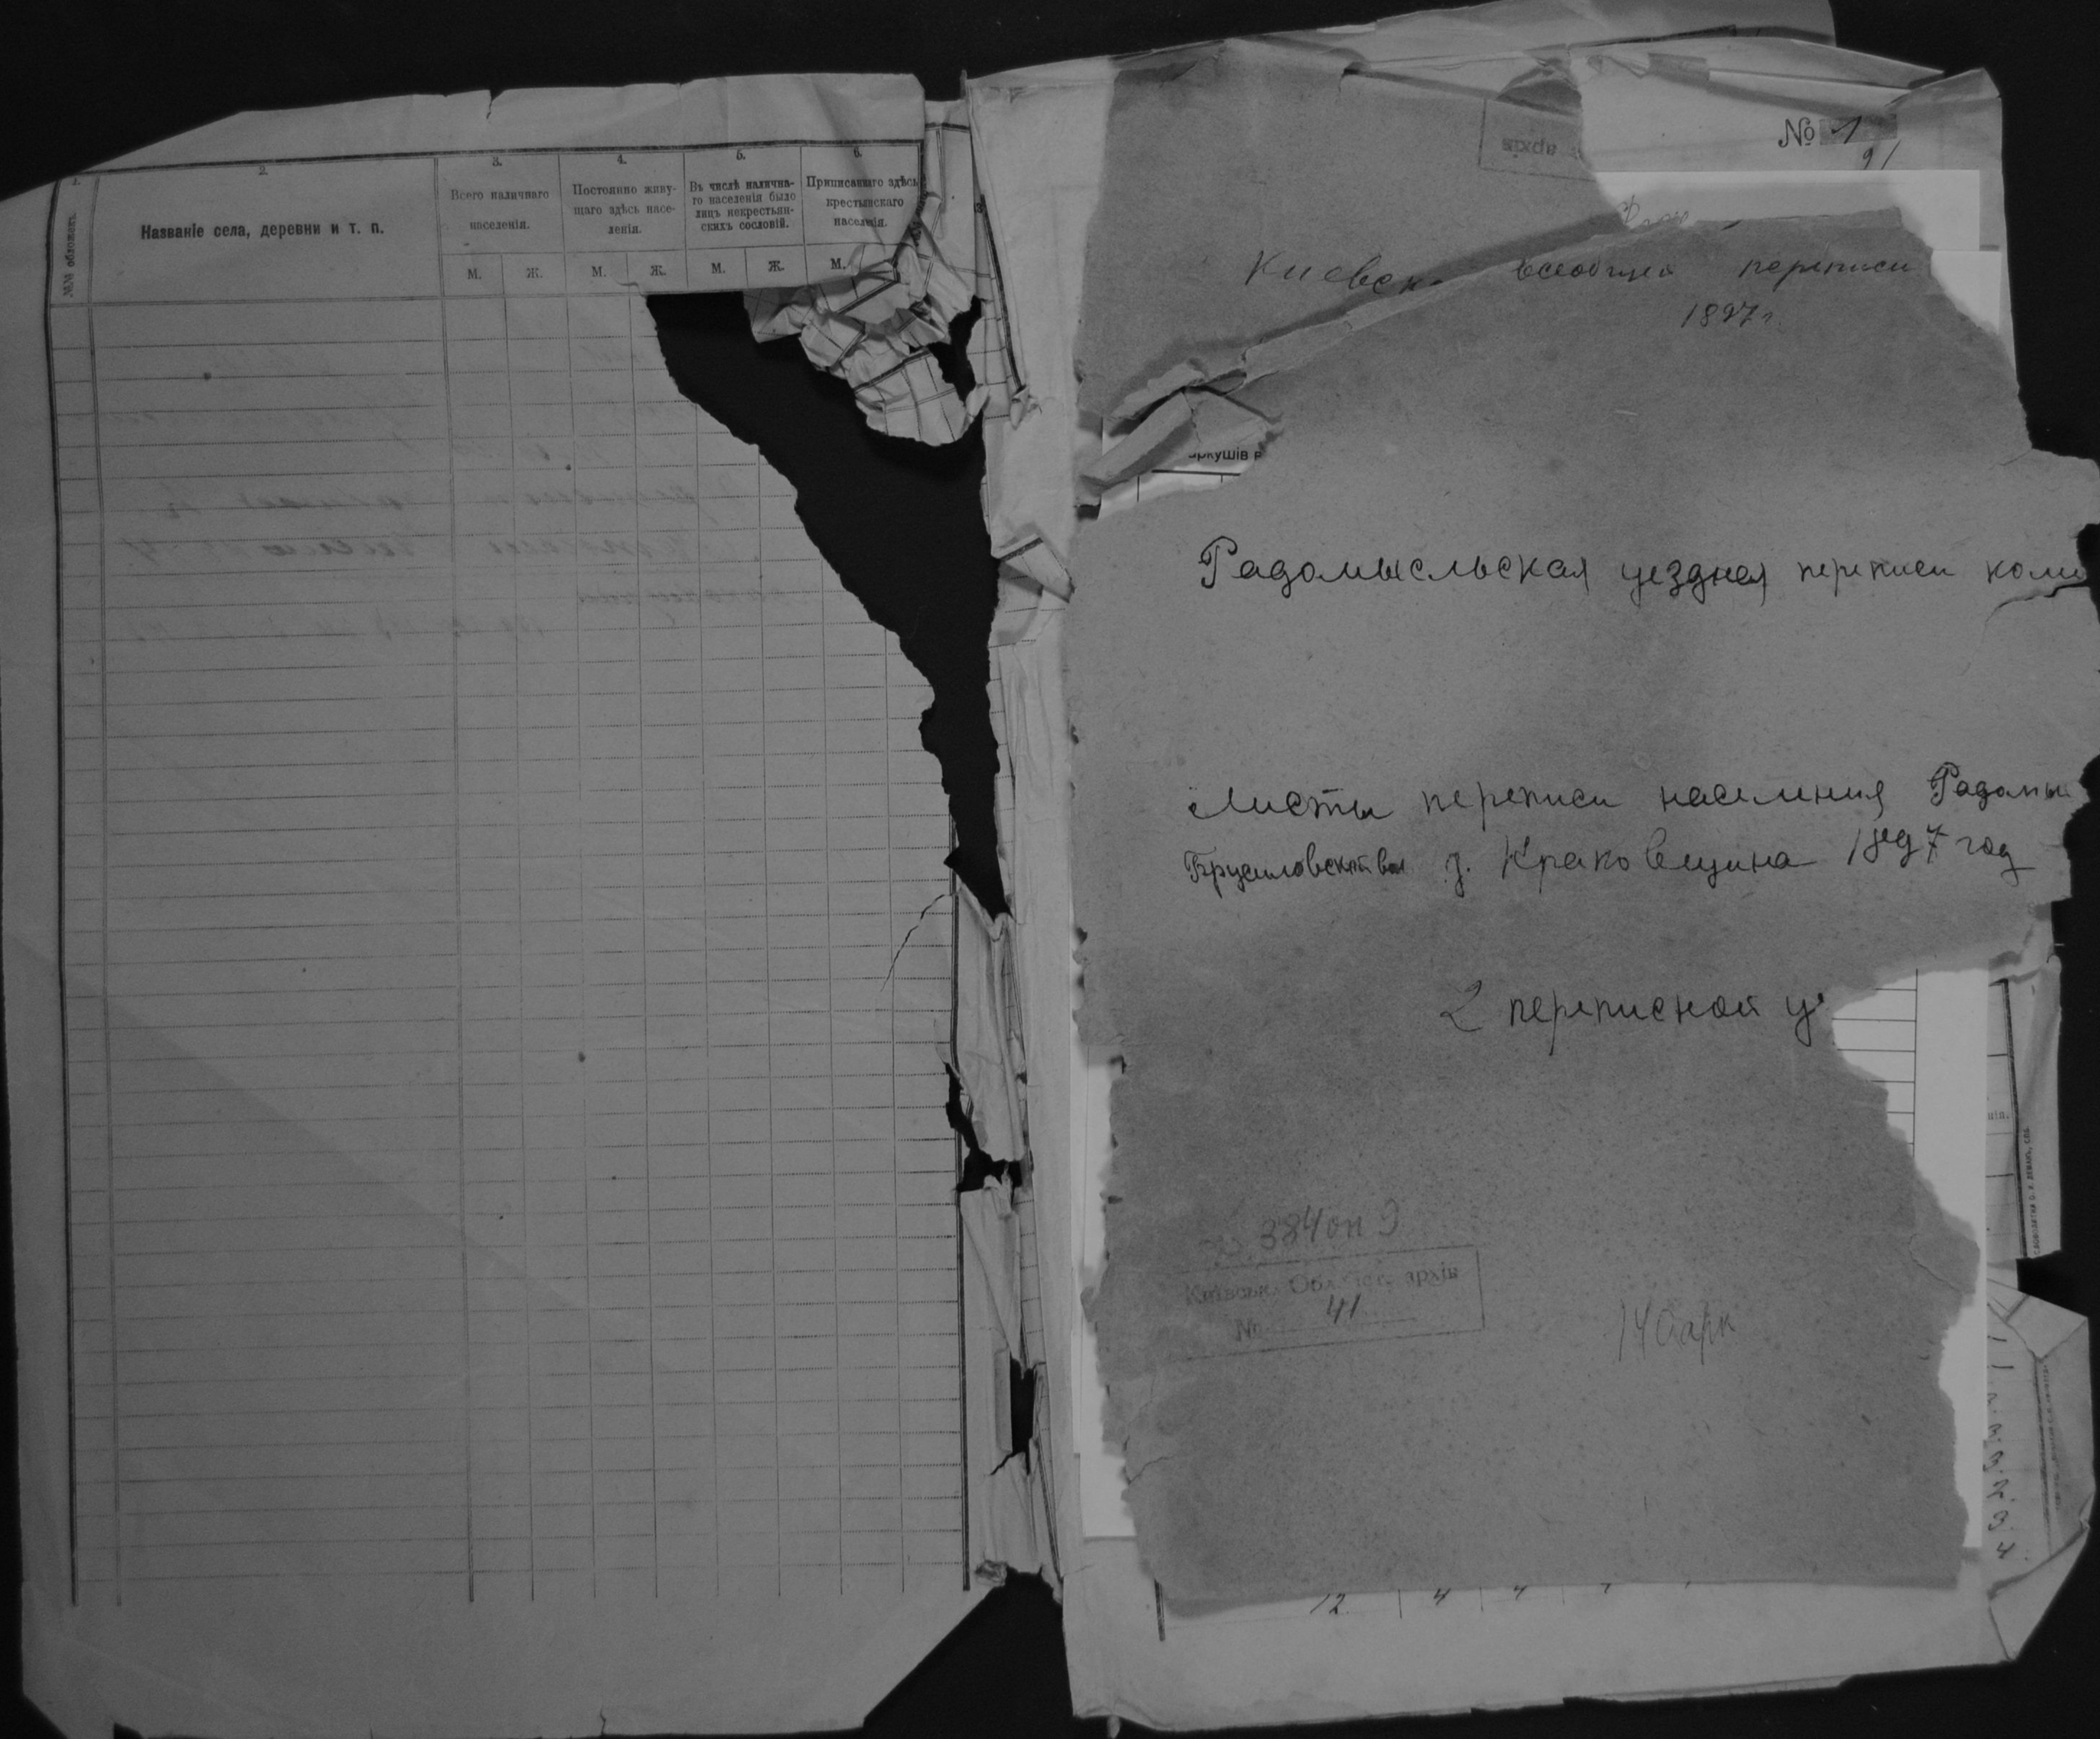 1.
№№ обложекъ.
2.
Названіе села, деревни и т. п.
3.
Всего наличнаго
населенія.
4.
Постоянно живу-
щаго здѣсь насе-
ленія.
5.
Въ числѣ налична-
го населенія было
лицъ некрестьян-
скихъ сословій.
6.
Приписаннаго здѣсь
крестьянскаго
населенія.
М. Ж. М. Ж. М. Ж. М.
архів
№ 1
91
Киевск всеобщей переписи
1897 г.
аркушів
Радомысльская уездная переписи коми
Листы переписи населения Радомы
Брусиловской вол з. Краковщина 1897 год
2 переписной у
384 оп 9
Київськ. Обл. іст. архів
№ 41
140 арк
нія.
12 4 4